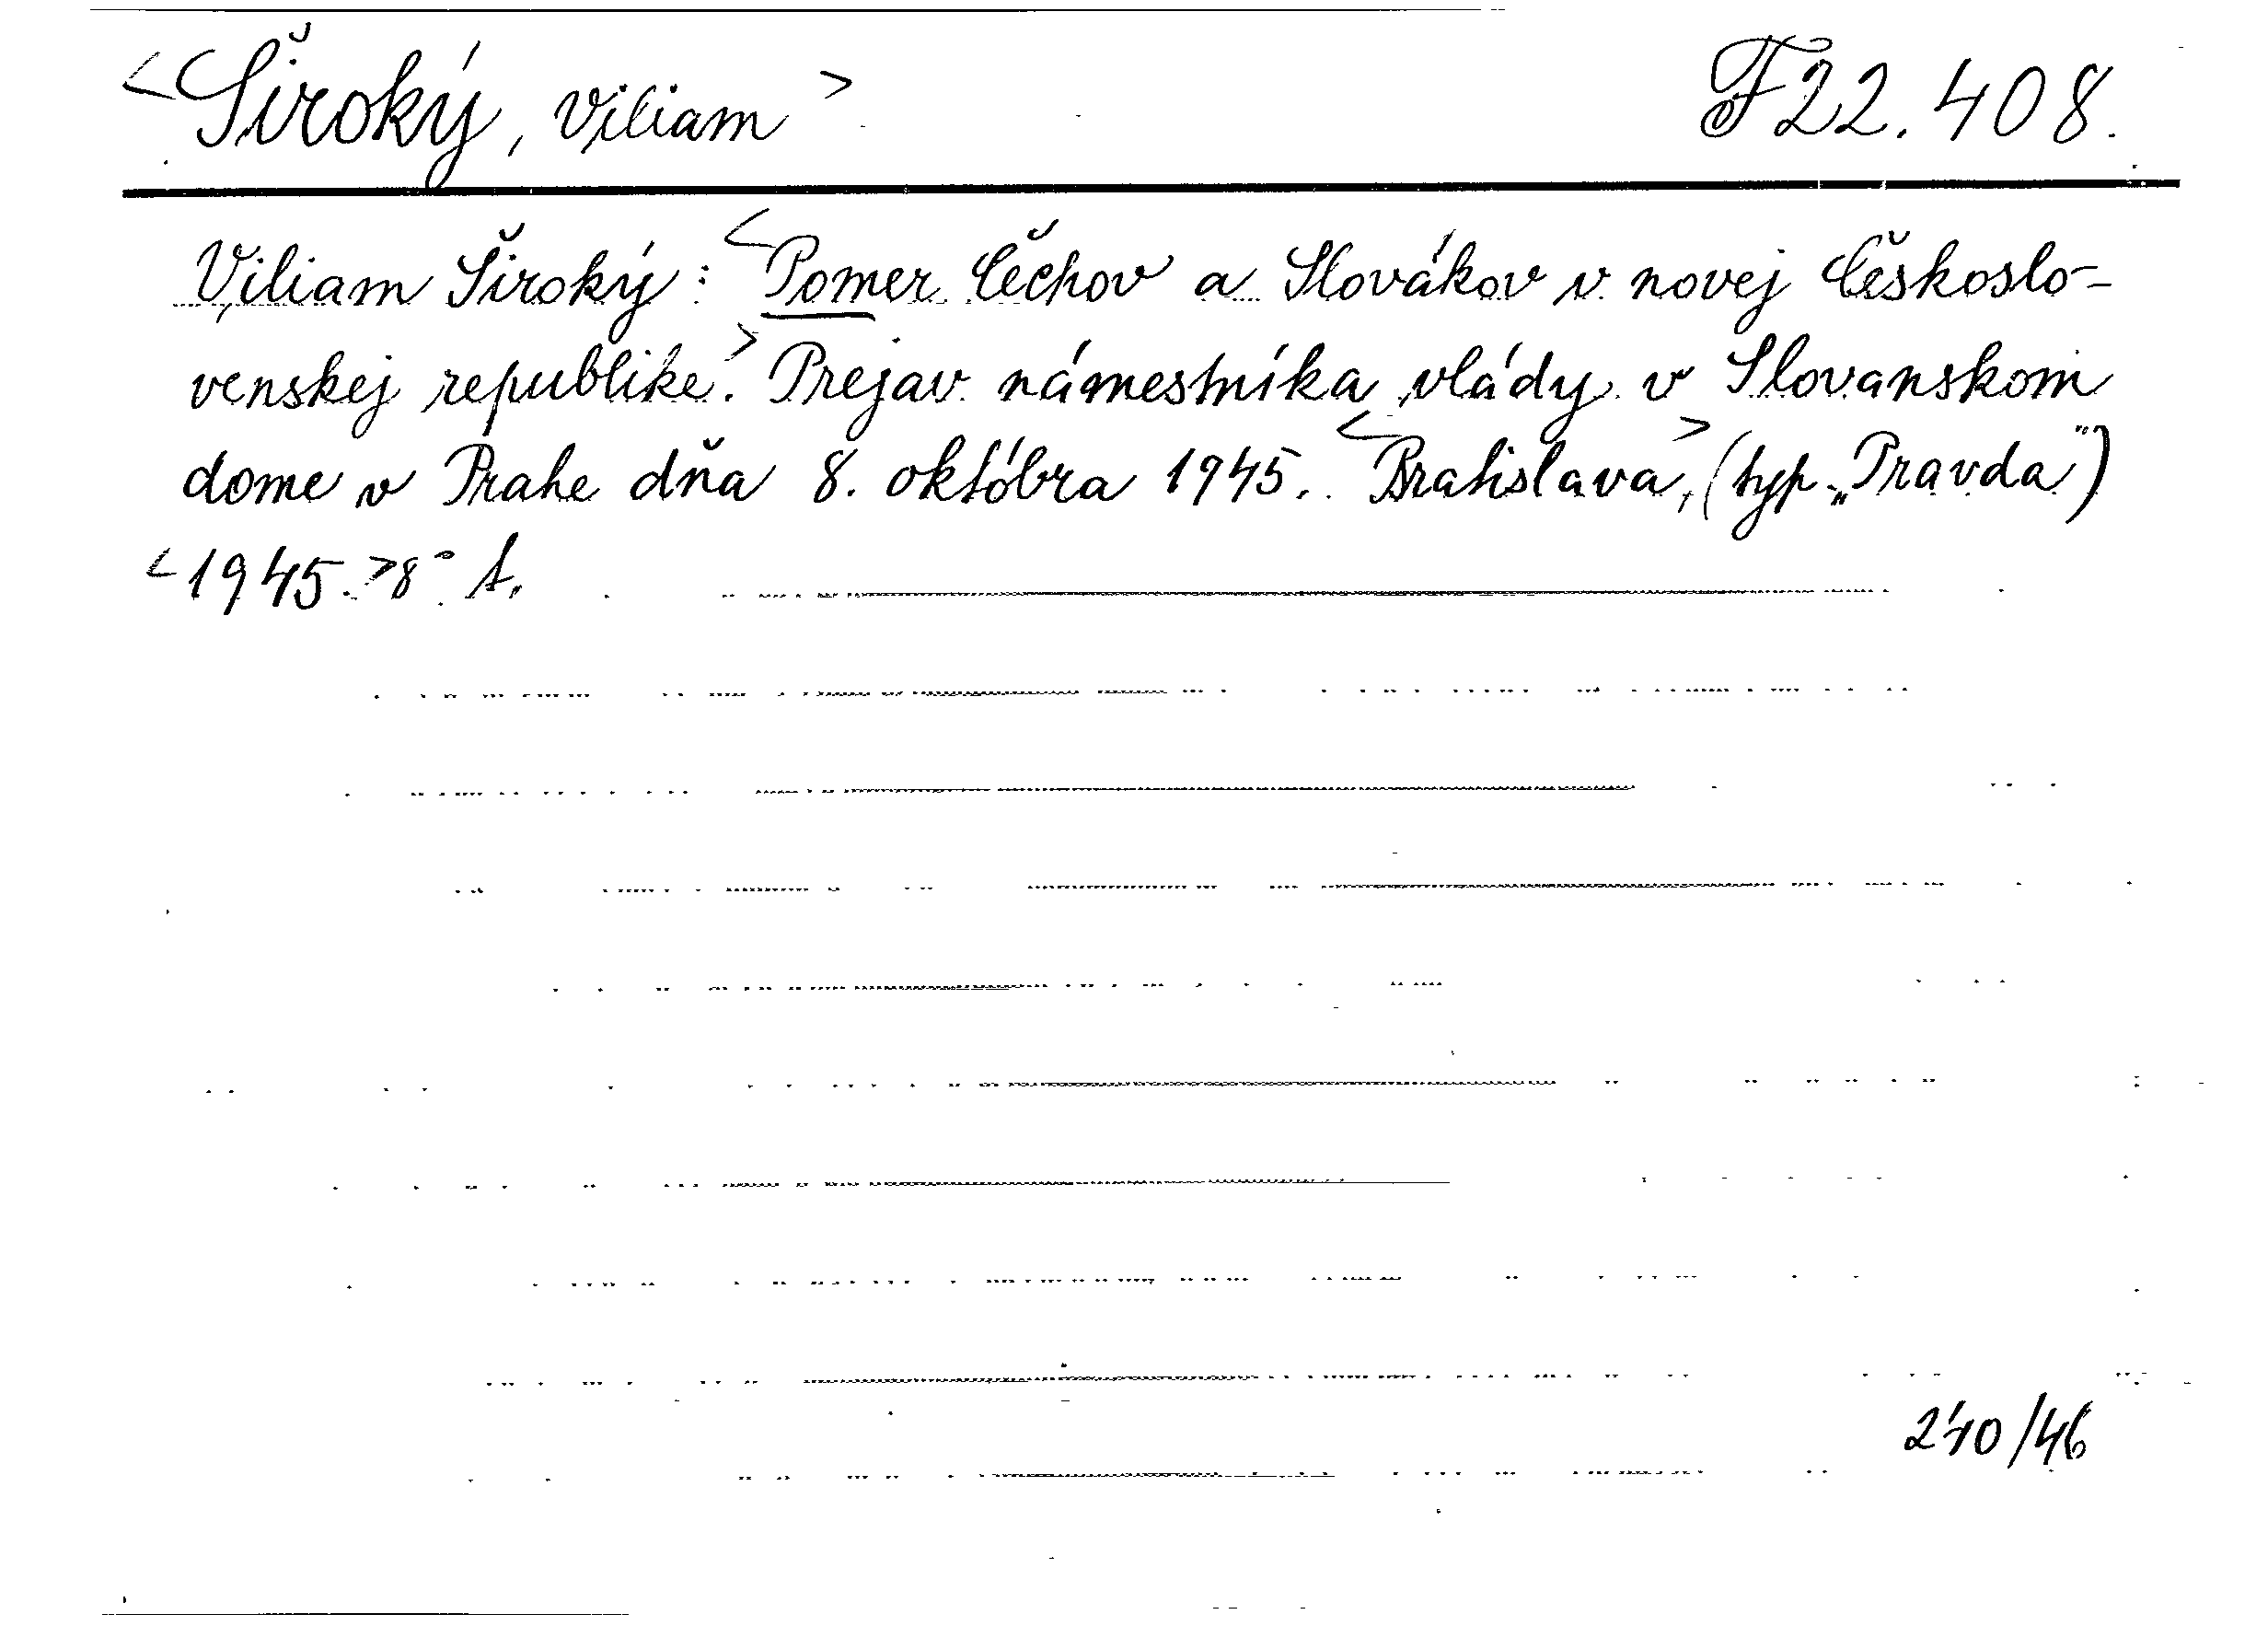 <Široký, Viliam> F22.408.
Viliam Široký: <Pomer Čechov a Slovákov v novej Českoslo-
venskej republike.> Prejav námestníka vlády v Slovanskom
dome v Prahe dňa 8. októbra 1945. <Bratislava>, (typ. „Pravda")
<1945.> 8° A.
240/46